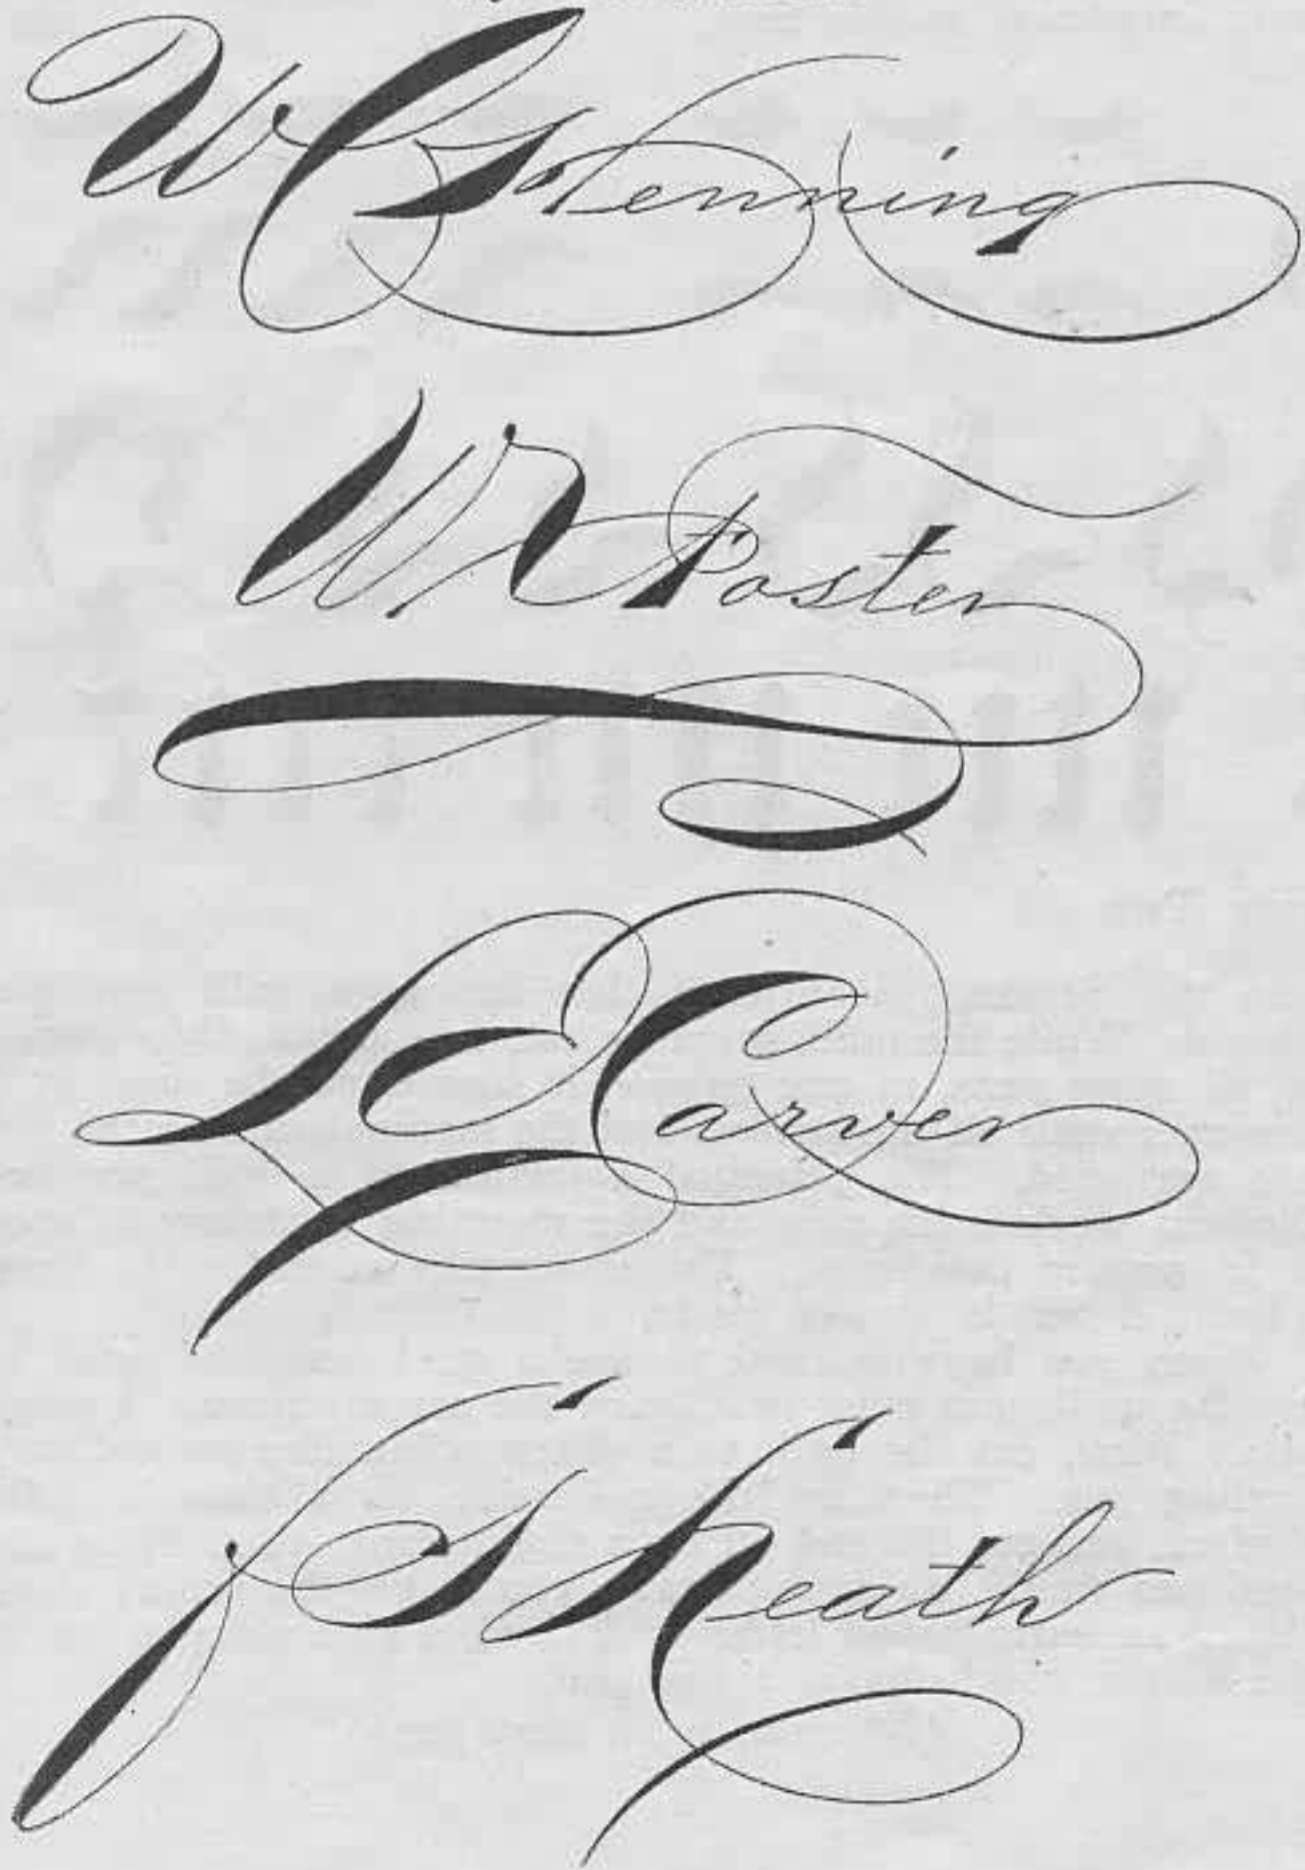 W C Henning
W R Poster
L E Carver
J S Heath